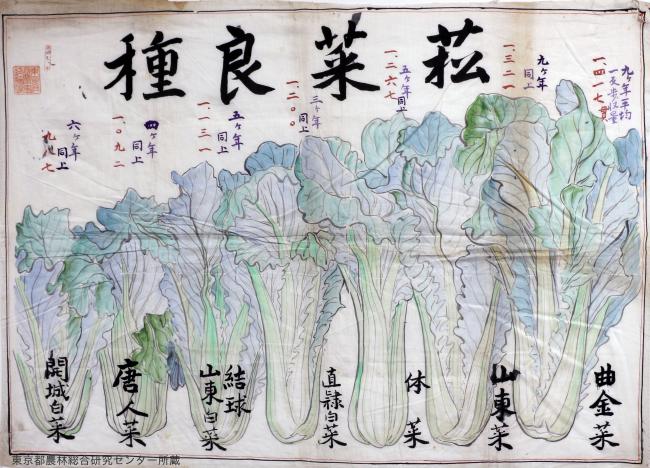 菘菜良種
九ヶ年平均
一反歩収量
一、四一七貫
九ヶ年
同上
一、三二一
五ヶ年
同上
一、二六七
三ヶ年
同上
一、二〇〇
五ヶ年
同上
一、一三一
四ヶ年
同上
一、〇九二
六ヶ年
同上
九八七
曲金菜
山東菜
体菜
直隷白菜
結球
山東白菜
唐人菜
開城白菜
東京都農林総合研究センター所蔵